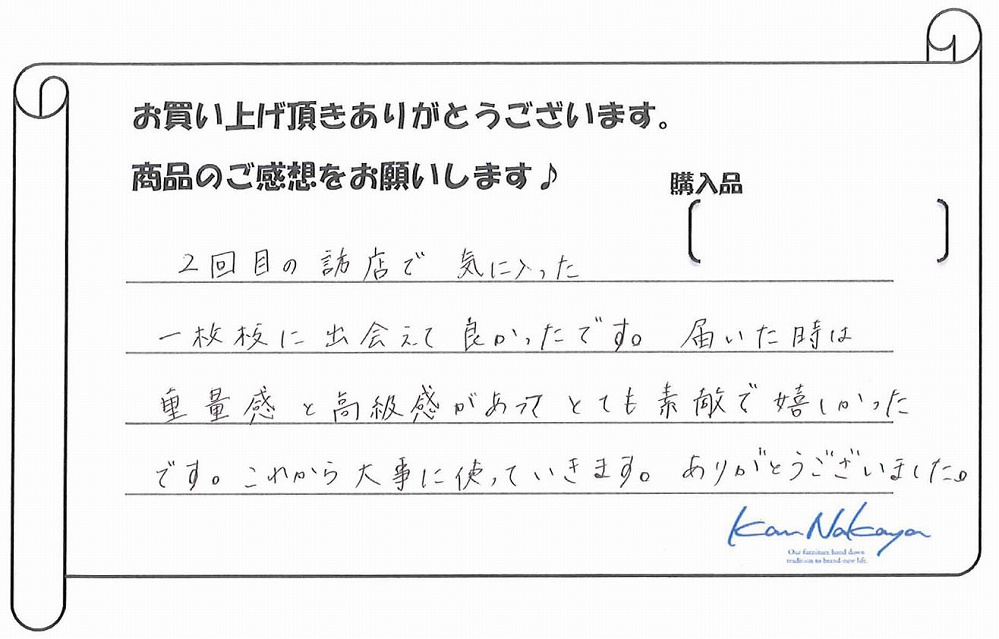 お買い上げ頂きありがとうございます。
商品のご感想をお願いします♪
購入品
2回目の訪店で 気に入った
一枚板に出会えて良かったです。 届いた時は
重量感と高級感があって とても素敵で嬉しかった
です。これから大事に使っていきます。 ありがとうございました。
Kan Nakaya
Our furniture hand down
tradition to brand-new life.